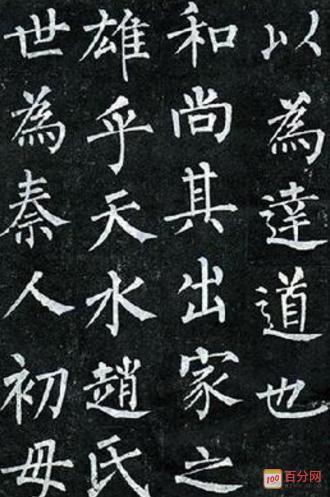 以為達道也
和尚其出家之
雄乎天水趙氏
世為秦人初母
100
百分网